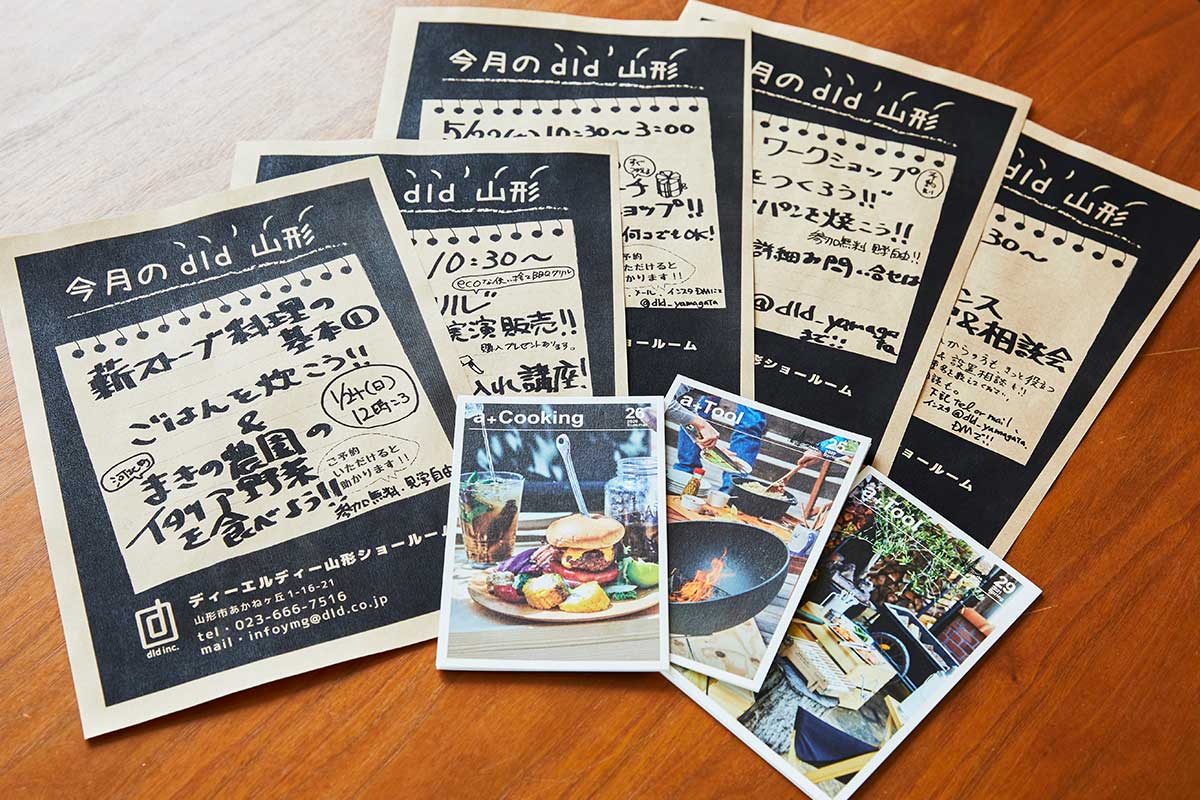 今月の dld 山形
薪ストーブ料理の
基本①
ごはんを炊こう!!
&
1/24(日)
12時ごろ
まきの農園の
イタリア野菜
を食べよう!!
ご予約
いただけると
助かります!!
参加無料・見学自由
ディーエルディー山形ショールーム
山形市あかねヶ丘1-16-21
tel・023-666-7516
mail・infoymg@dld.co.jp
dld inc.
dld 山形
10:30～
ecoな使い捨てBBQグリル
実演販売!!
入れ講座!
今月の dld 山形
10:30～3:00
ョップ!!
何コでもOK!
予約
ただけると
かります!!
メール、インスタDMにて
@dld_yamagata
ョールーム
月の dld 山形
ワークショップ
をつくろう!!"
パンを焼こう!!
参加無料 見学自由!!
詳細お問い合せは
@dld_yamaga
ta
まで!!
形ショールーム
dld 山形
30～
&相談会
設置相談も!!
Tel or mail、
インスタ@dld_yamagata
DMで!!
ョールーム
a+Cooking
26
a+Tool
25
a+Tool
29